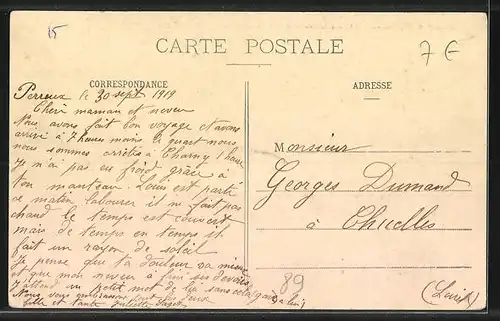 15
CARTE POSTALE
7 €
CORRESPONDANCE
ADRESSE
Perreux le 30 sept 1919
Cheri maman et neveu
Nous avons fait bon voyage et avons
arrivé à 7 heures moins le quart nous
nous sommes arrêtés à Charny 1 heure
Je n'ai pas eu froid grâce à
ton manteau. Louis est parti
ce matin labourer il ne fait pas
chaud le temps est couvert
mais de temps en temps il
fait un rayon de soleil
Je pense que ta douleur va mieux
et que mon neveu a fini ses devoirs
J'attend un petit mot de lui sans cela gare à lui
Nous vous embrassons tous deux
fille et tante Juliette
Monsieur
Georges Dumand
à Chuelles
(Loiret)
89